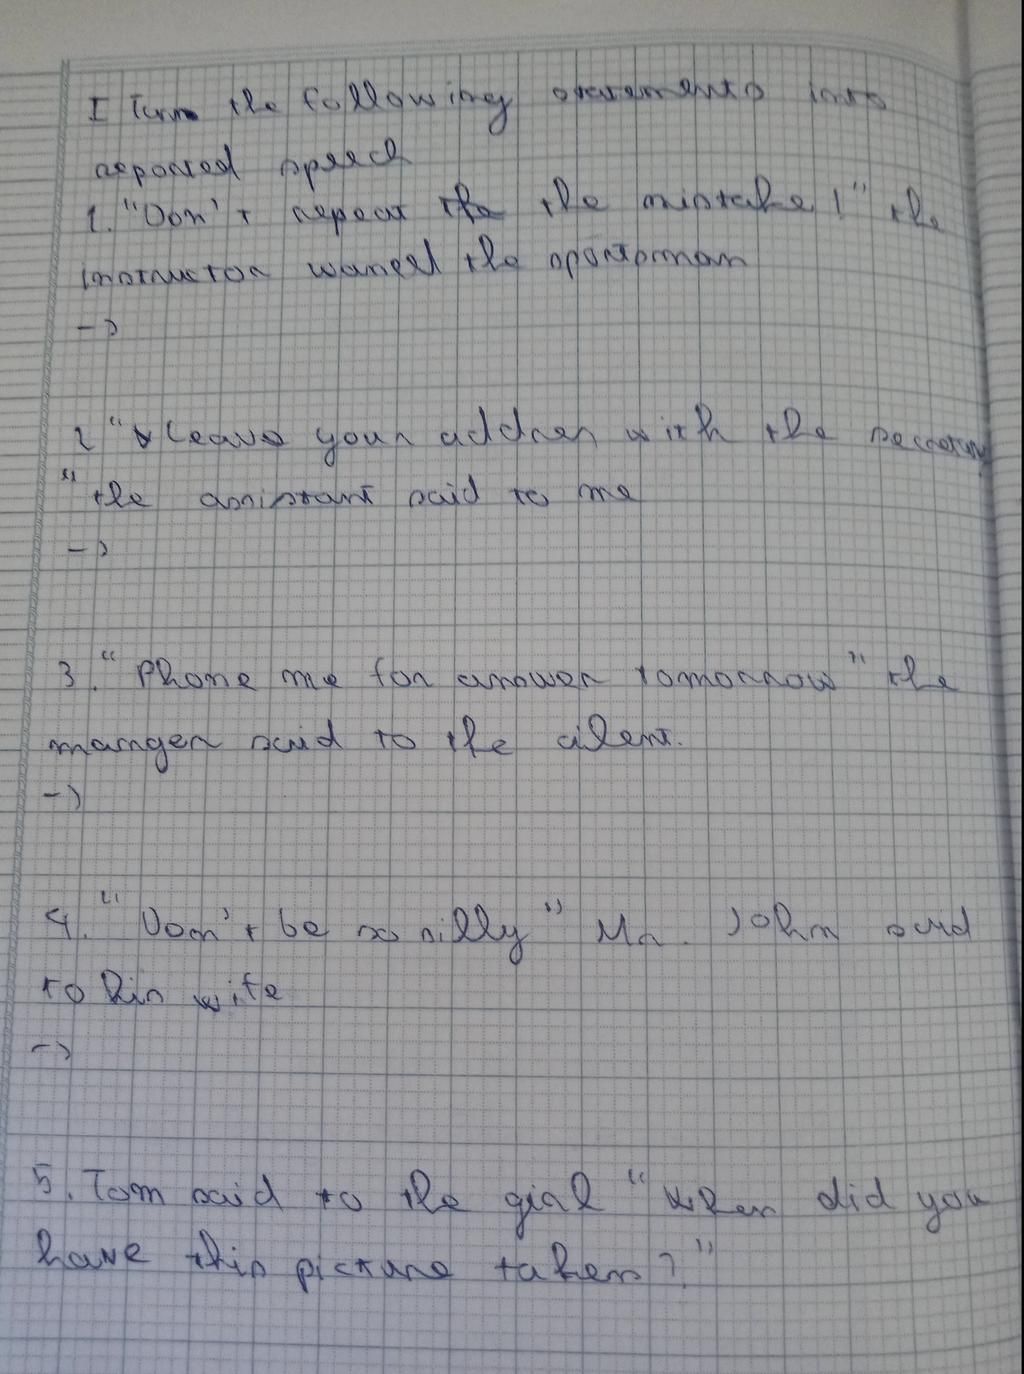 I Turn the following statements into
reported speech
1. "Don't repeat the the mistake!" the
instructor waned the sportsman
->
2 "Leave your addres with the secretary
" the assistant said to me
->
3. "Phone me for answer tomorrow" the
manger said to the client.
->
4. "Don't be so silly" Mr. John said
to his wife
->
5. Tom said to the girl "When did you
have this picture taken?"